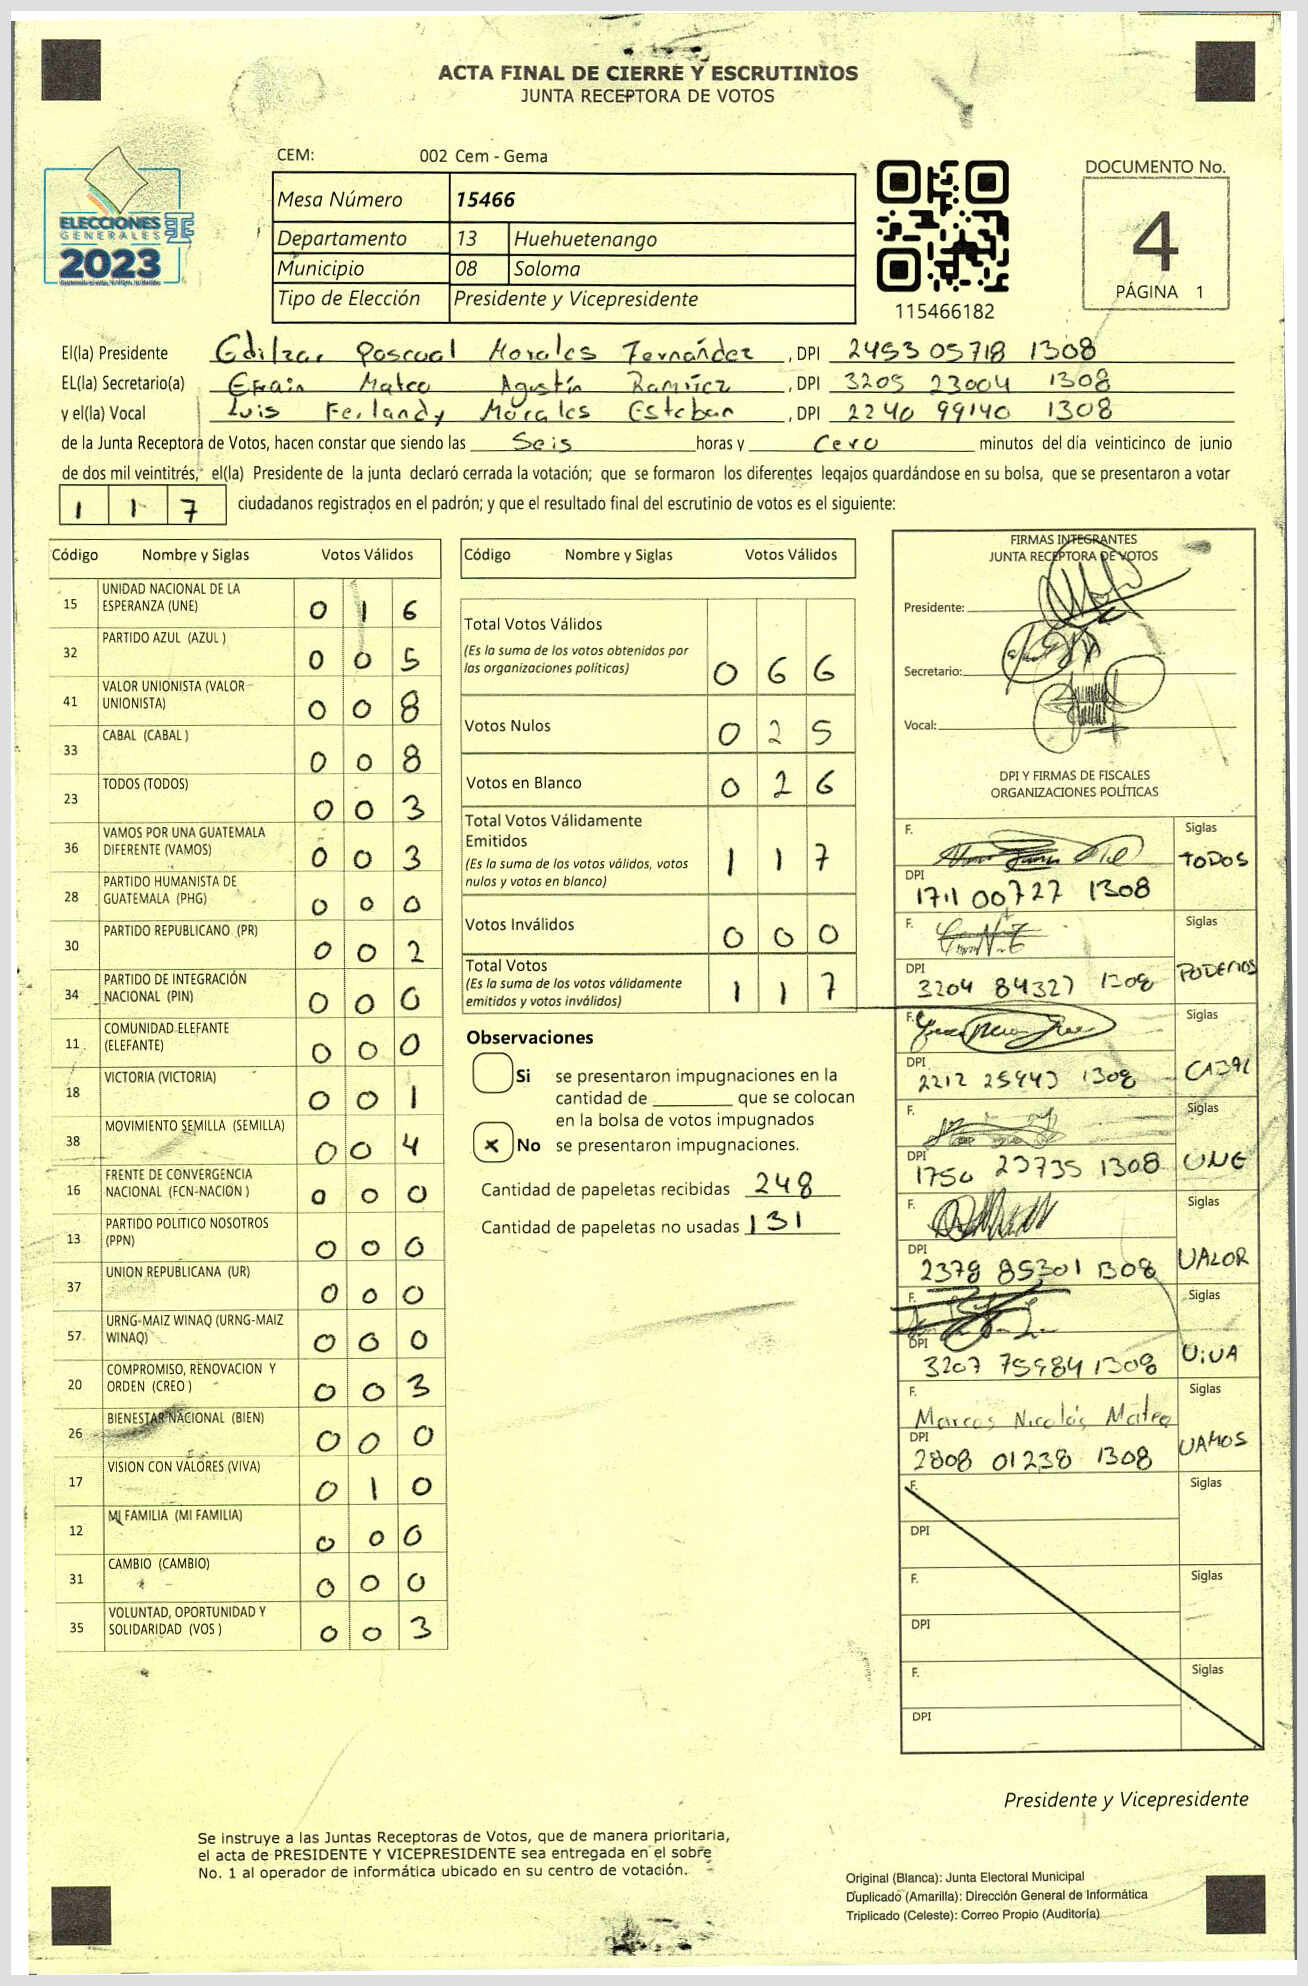 ACTA FINAL DE CIERRE Y ESCRUTINIOS
JUNTA RECEPTORA DE VOTOS
CEM: 002 Cem - Gema
DOCUMENTO No.
4
PÁGINA 1
ELECCIONES
GENERALES
2023
Mesa Número 15466
Departamento 13 Huehuetenango
Municipio 08 Soloma
Tipo de Elección Presidente y Vicepresidente
115466182
El(la) Presidente Edilzar Pascual Morales Fernández , DPI 2453 05718 1308
EL(la) Secretario(a) Efrain Mateo Agustín Ramírez , DPI 3205 23004 1308
y el(la) Vocal Luis Ferlandy Morales Esteban , DPI 2240 99140 1308
de la Junta Receptora de Votos, hacen constar que siendo las Seis horas y Cero minutos del día veinticinco de junio
de dos mil veintitrés, el(la) Presidente de la junta declaró cerrada la votación; que se formaron los diferentes legajos guardándose en su bolsa, que se presentaron a votar
1 1 7 ciudadanos registrados en el padrón; y que el resultado final del escrutinio de votos es el siguiente:
Código Nombre y Siglas Votos Válidos
15 UNIDAD NACIONAL DE LA
ESPERANZA (UNE) 0 1 6
32 PARTIDO AZUL (AZUL ) 0 0 5
41 VALOR UNIONISTA (VALOR
UNIONISTA) 0 0 8
33 CABAL (CABAL ) 0 0 8
23 TODOS (TODOS) 0 0 3
36 VAMOS POR UNA GUATEMALA
DIFERENTE (VAMOS) 0 0 3
28 PARTIDO HUMANISTA DE
GUATEMALA (PHG) 0 0 0
30 PARTIDO REPUBLICANO (PR) 0 0 2
34 PARTIDO DE INTEGRACIÓN
NACIONAL (PIN) 0 0 0
11 COMUNIDAD ELEFANTE
(ELEFANTE) 0 0 0
18 VICTORIA (VICTORIA) 0 0 1
38 MOVIMIENTO SEMILLA (SEMILLA) 0 0 4
16 FRENTE DE CONVERGENCIA
NACIONAL (FCN-NACION ) 0 0 0
13 PARTIDO POLITICO NOSOTROS
(PPN) 0 0 0
37 UNION REPUBLICANA (UR) 0 0 0
57 URNG-MAIZ WINAQ (URNG-MAIZ
WINAQ) 0 0 0
20 COMPROMISO, RENOVACION Y
ORDEN (CREO ) 0 0 3
26 BIENESTAR NACIONAL (BIEN) 0 0 0
17 VISION CON VALORES (VIVA) 0 1 0
12 MI FAMILIA (MI FAMILIA) 0 0 0
31 CAMBIO (CAMBIO) 0 0 0
35 VOLUNTAD, OPORTUNIDAD Y
SOLIDARIDAD (VOS ) 0 0 3
Código Nombre y Siglas Votos Válidos
Total Votos Válidos
(Es la suma de los votos obtenidos por
las organizaciones políticas) 0 6 6
Votos Nulos 0 2 5
Votos en Blanco 0 2 6
Total Votos Válidamente
Emitidos
(Es la suma de los votos válidos, votos
nulos y votos en blanco) 1 1 7
Votos Inválidos 0 0 0
Total Votos
(Es la suma de los votos válidamente
emitidos y votos inválidos) 1 1 7
Observaciones
Si se presentaron impugnaciones en la
cantidad de ________ que se colocan
en la bolsa de votos impugnados
x No se presentaron impugnaciones.
Cantidad de papeletas recibidas 248
Cantidad de papeletas no usadas 131
FIRMAS INTEGRANTES
JUNTA RECEPTORA DE VOTOS
Presidente:
Secretario:
Vocal:
DPI Y FIRMAS DE FISCALES
ORGANIZACIONES POLÍTICAS
F. Siglas
TODOS
DPI
1711 00727 1308
F. Siglas
PODEMOS
DPI
3204 84327 1308
F. Siglas
CABAL
DPI
2212 25943 1308
F. Siglas
UNE
DPI
1750 23735 1308
F. Siglas
VALOR
DPI
2378 85301 1308
F. Siglas
ViVA
DPI
3207 75984 1308
F. Siglas
Marcos Nicolás Mateo
VAMOS
DPI
2808 01238 1308
F. Siglas
DPI
F. Siglas
DPI
F. Siglas
DPI
Presidente y Vicepresidente
Se instruye a las Juntas Receptoras de Votos, que de manera prioritaria,
el acta de PRESIDENTE Y VICEPRESIDENTE sea entregada en el sobre
No. 1 al operador de informática ubicado en su centro de votación.
Original (Blanca): Junta Electoral Municipal
Duplicado (Amarilla): Dirección General de Informática
Triplicado (Celeste): Correo Propio (Auditoría)